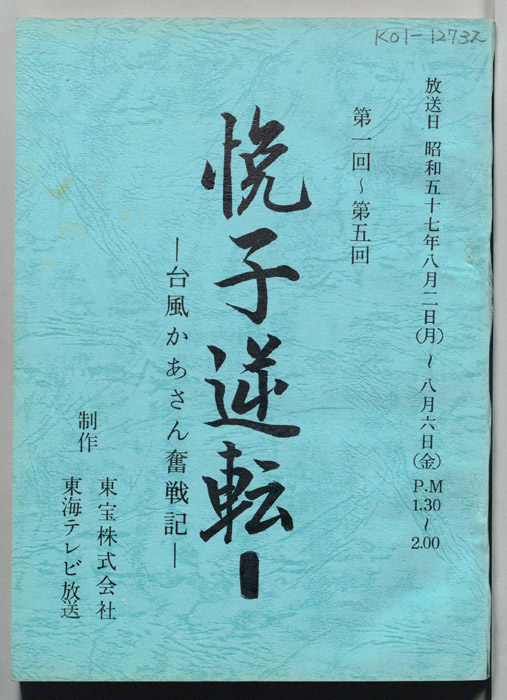 K01-12732
放送日 昭和五十七年八月二日(月)~八月六日(金)P.M 1.30~2.00
第一回~第五回
悦子逆転ー
―台風かあさん奮戦記―
制作
東宝株式会社
東海テレビ放送